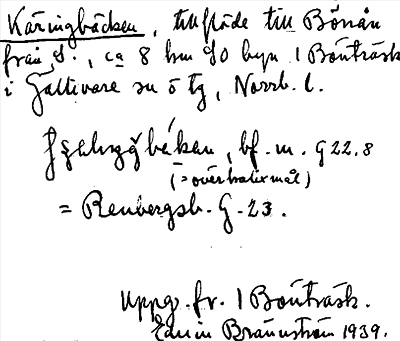 Käringbäcken, tillflöde till Bönån
från S., ca 8 km SO byn 1 Bönträsk
i Gällivare sn ö tg, Norrb. l.
bf. m. G 22.8
(= överkalixmål)
= Renbergsb. G. 23.
Uppg. fr. 1 Bönträsk.
Edvin Brännström 1939.